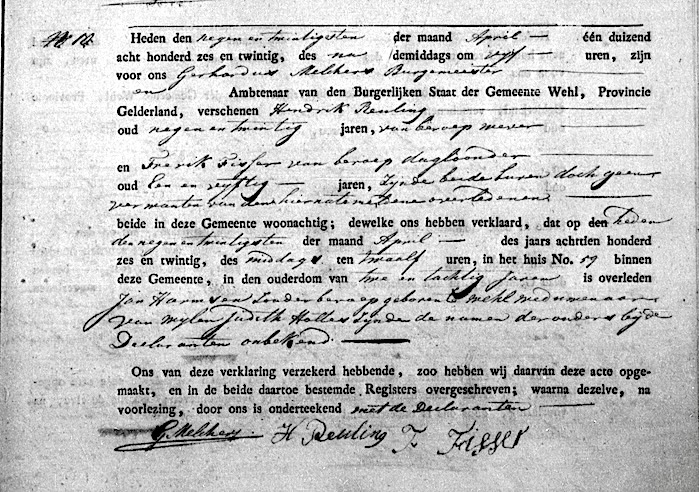 N 12. Heden den negen en twintigsten der maand April één duizend
acht honderd zes en twintig, des na /demiddags om vyf uren, zijn
voor ons Gerhardus Melchers Burgemeister
en Ambtenaar van den Burgerlijken Staat der Gemeente Wehl, Provincie
Gelderland, verschenen Hendrik Reuling
oud negen en twintig jaren, van beroep wever
en Frerik Fisser van beroep dagloonder
oud Een en vyftig jaren, Zynde beide buren doch geen
verwanten van den hiernatemeldene overledenen
beide in deze Gemeente woonachtig; dewelke ons hebben verklaard, dat op den heden
den negen en twintigsten der maand April des jaars achttien honderd
zes en twintig, des middags ten twaalf uren, in het huis No. 59 binnen
deze Gemeente, in den ouderdom van twe en tachtig Jaren is overleden
Jan Harmsen Zonder beroep geboren te wehl weduwenaar
van wylen Judith Zynde de namen der ouders by de
Declaranten onbekend.
Ons van deze verklaring verzekerd hebbende, zoo hebben wij daarvan deze acte opge-
maakt, en in de beide daartoe bestemde Registers overgeschreven; waarna dezelve, na
voorlezing, door ons is onderteekend met de Declaranten
G. Melchers H Reuling F Fisser